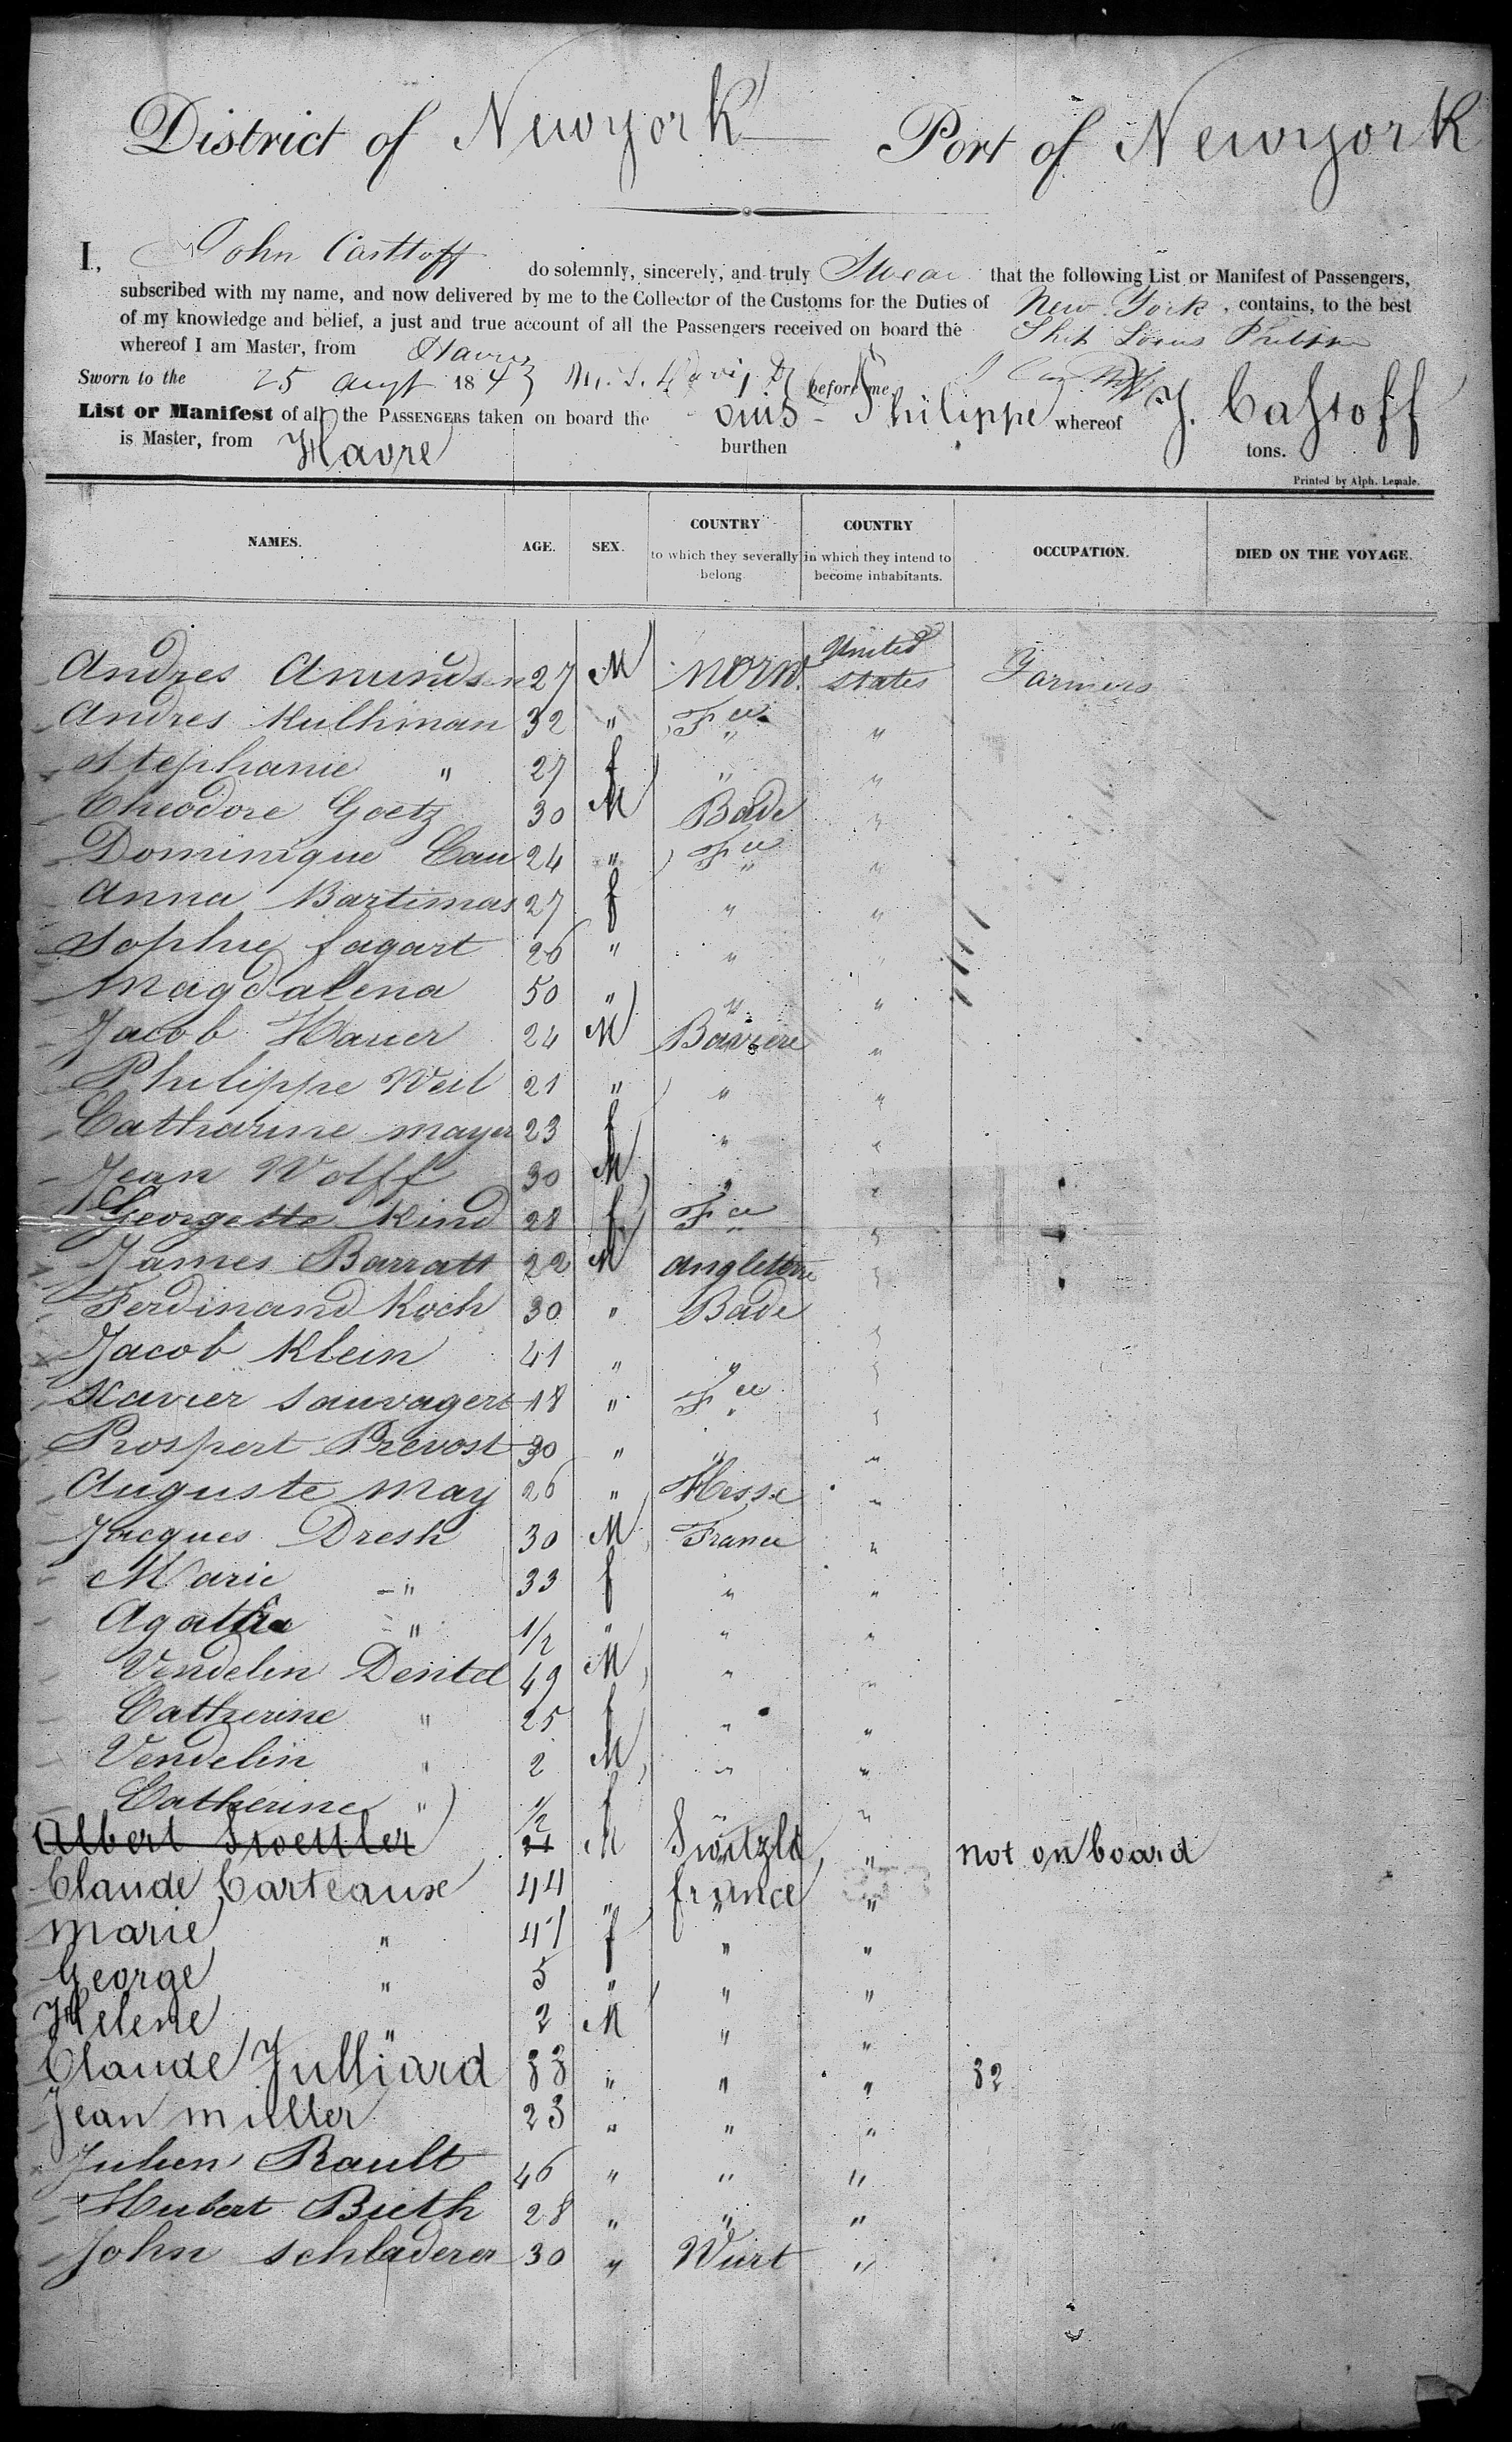 District of Newyork Port of Newyork
I, John Casttoff do solemnly, sincerely, and truly Swear that the following List or Manifest of Passengers,
subscribed with my name, and now delivered by me to the Collector of the Customs for the Duties of New York, contains, to the best
of my knowledge and belief, a just and true account of all the Passengers received on board the Ship Louis Philippe
whereof I am Master, from Havre
Sworn to the 25 Augt 1843 before me
List or Manifest of all the PASSENGERS taken on board the Louis-Philippe whereof J. Castoff
is Master, from Havre burthen tons.
Printed by Alph. Lemale.
NAMES. AGE. SEX. COUNTRY to which they severally belong COUNTRY in which they intend to become inhabitants. OCCUPATION. DIED ON THE VOYAGE.
Andres Amundsen 27 M Norw. United states Farmers
Andres Kulhman 32 " Fce "
Stephanie " 27 f " "
Theodore Goetz 30 M Bade "
Dominique Cau 24 " Fce "
Anna Bartimas 27 f " "
Sophie fagart 26 " " "
Magdalena 50 " " "
Jacob Hauer 24 M Baviere "
Philippe Weil 21 " " "
Catharine mayer 23 f " "
Jean Wolff 30 M " "
Georgette Kind 28 f Fce "
James Barratt 22 M angleterre "
Ferdinand Koch 30 " Bade "
Jacob Klein 41 " " "
Xavier Sauvagert 18 " Fce "
Prospert Prevost 30 " " "
Auguste May 26 " Hesse "
Jacques Dresh 30 M France "
Marie " 33 f " "
Agatha " 1/2 " " "
Vendelin Dentel 49 M " "
Catherine " 25 f " "
Vendelin " 2 M " "
Catherine " 1/2 f " "
Albert 21 M Switzld " not on board
Claude Carteaux 44 " france "
Marie " 41 f " "
George " 5 " " "
Helene " 2 M " "
Claude Julliard 33 " " " 32
Jean miller 23 " " "
Julien Rault 46 " " "
Hubert Bieth 28 " " "
John Schladerer 30 " Wurt "